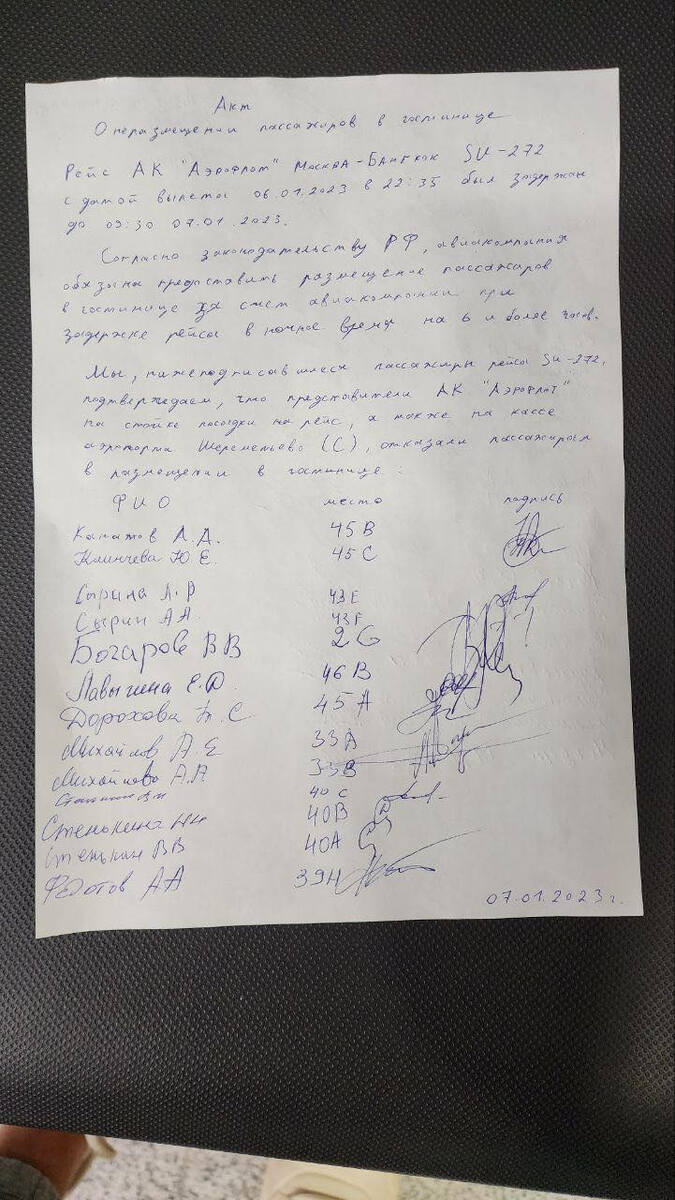 Акт
О неразмещении пассажиров в гостинице
Рейс АК "Аэрофлот" Москва-Бангкок SU-272
с датой вылета 06.01.2023 в 22:35 был задержан
до 09:30 07.01.2023.
Согласно законодательству РФ, авиакомпания
обязана предоставить размещение пассажиров
в гостинице за счет авиакомпании при
задержке рейса в ночное время на 6 и более часов.
Мы, нижеподписавшиеся пассажиры рейса SU-272,
подтверждаем, что представители АК "Аэрофлот"
на стойке посадки на рейс, а также на кассе
аэропорта Шереметьево (С), отказали пассажирам
в размещении в гостинице:
ФИО место подпись
А.Д. 45В
Климчева Ю.Е. 45С
Сырина Л.Р 43Е
Сырин АА. 43F
Богаров ВВ 2G
Лавыгина Е.Ю. 46В
Дорохова С 45А
Михайлов А.Е 33А
Михайлова А.А 33В
40С
Стенькина НН 40В
Стенькин ВВ 40А
Федотов АА 39Н
07.01.2023г.